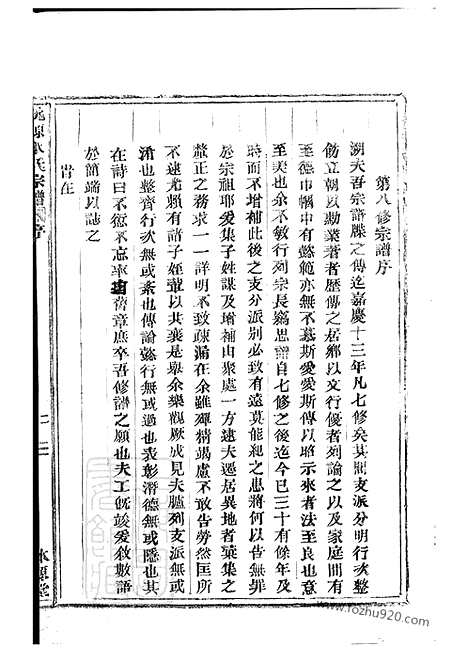 第八修宗譜序
溯夫吾宗譜牒之傳迄嘉慶十三年凡七修矣其間支派分明行次整
飭立朝以勳業著者歷傳之居鄉以文行優者列論之以及家庭間有
至德巾幗中有懿範亦無不慕斯愛愛斯傳以昭示來者法至良也意
至美也余不敏行列宗長竊思譜自七修之後迄今已三十有餘年及
時而不增補此後之支分派別必致有遠莫能紀之患將何以告無罪
於宗祖耶爰集子姓謀及增補由聚處一方遠夫遷居異地者彙集之
釐正之務求一一詳明不致疎漏在余雖殫精竭慮不敢告勞然匡所
不逮尤賴有諸子姪輩以共襄是舉余樂觀厥成見夫臚列支派無或
淆也整齊行次無或紊也傳論懿行無或過也表彰潛德無或隱也其
在詩曰不愆不忘率由舊章庶卒吾修譜之願也夫工既竣爰敘數語
於簡端以誌之
氏宗譜
序
二
本源堂
www.fozhu920.com